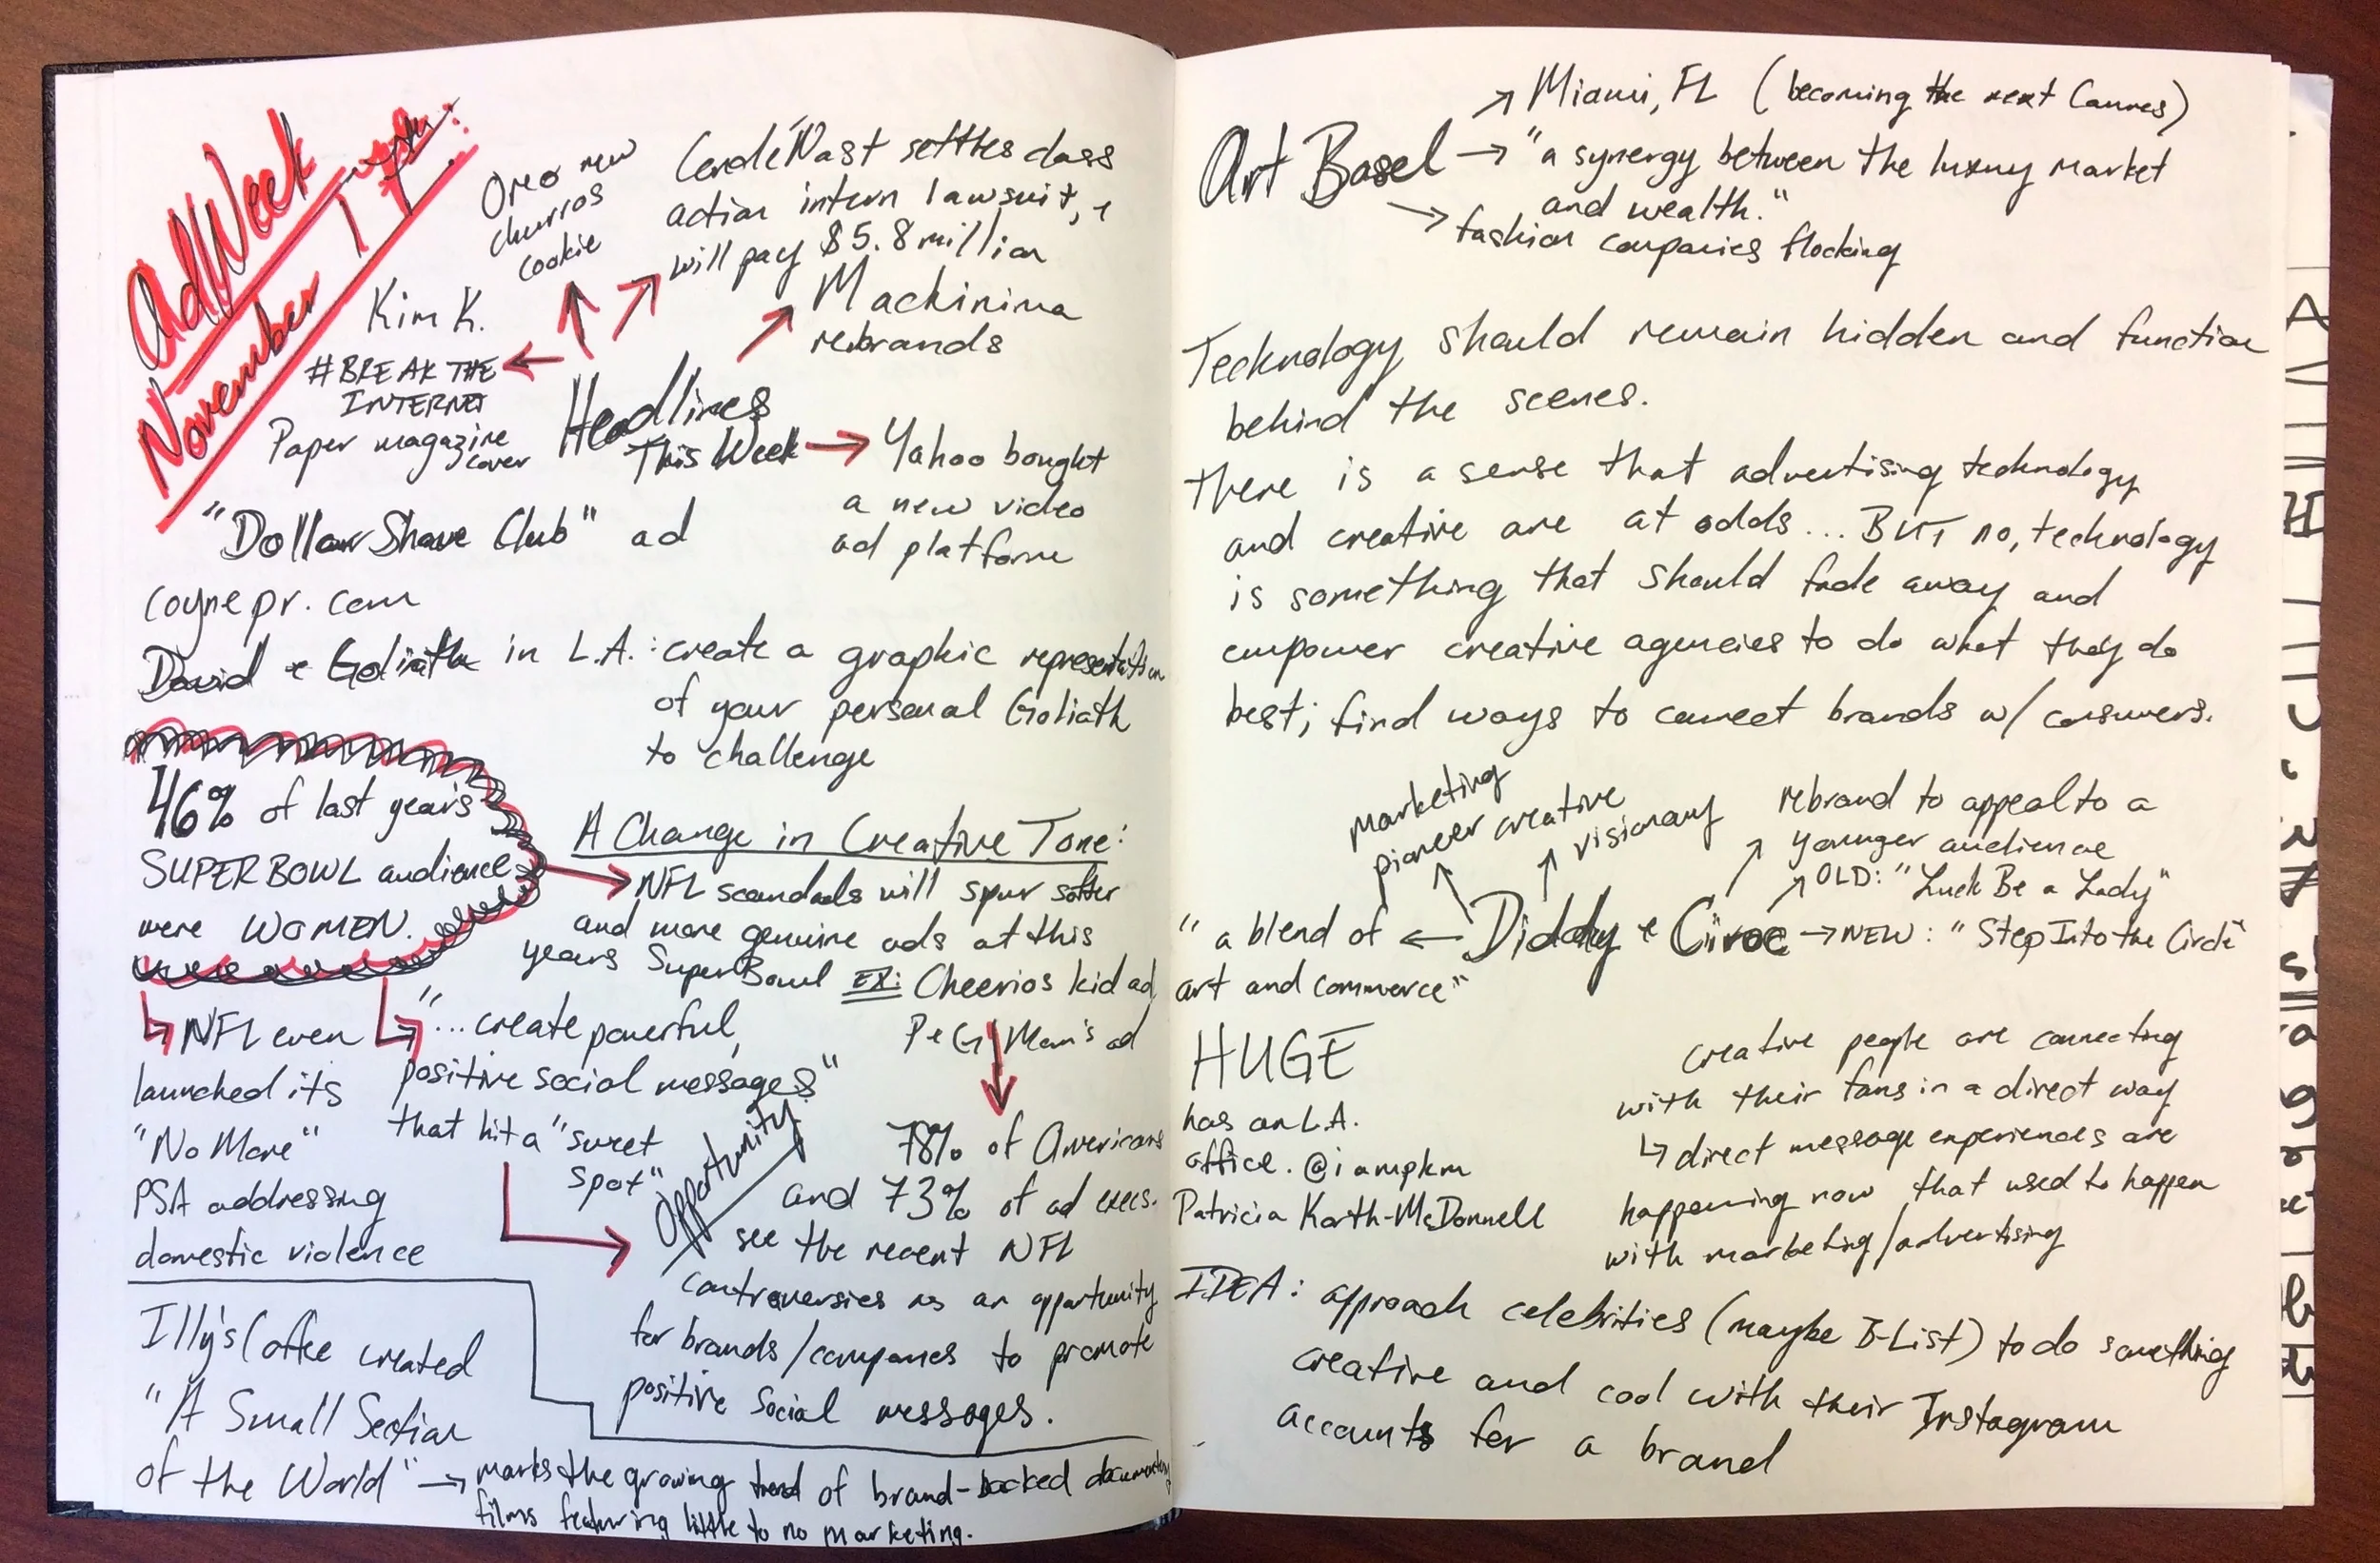 AdWeek
November 17th
Oreo new
churros
cookie
CondéNast settles class
action intern lawsuit,
will pay $5.8 million
Machinima
rebrands
Kim K.
#BREAK THE
INTERNET
Paper magazine
cover
Headlines
This Week
Yahoo bought
a new video
ad platform
"Dollar Shave Club" ad
coynepr.com
David & Goliath in L.A.: create a graphic representation
of your personal Goliath
to challenge
46% of last year's
SUPERBOWL audience
were WOMEN.
A Change in Creative Tone:
NFL scandals will spur softer
and more genuine ads at this
years SuperBowl EX: Cheerios kid ad
P&G/Mom's ad
NFL even
launched its
"No More"
PSA addressing
domestic violence
"...create powerful,
positive social messages"
that hit a "sweet
spot"
Opportunity
78% of Americans
and 73% of ad execs.
see the recent NFL
controversies as an opportunity
for brands/companies to promote
positive social messages.
Illy's Coffee created
"A Small Section
of the World"
marks the growing trend of brand-backed documentary
films featuring little to no marketing.
Miami, FL (becoming the next Cannes)
Art Basel
"a synergy between the luxury market
and wealth."
fashion companies flocking
Technology should remain hidden and function
behind the scenes.
There is a sense that advertising technology
and creative are at odds... BUT no, technology
is something that should fade away and
empower creative agencies to do what they do
best; find ways to connect brands w/ consumers.
marketing
pioneer
creative
visionary
rebrand to appeal to a
younger audience
OLD: "Luck Be a Lady"
"a blend of
art and commerce"
Diddy & Ciroc
NEW: "Step Into the Circle"
HUGE
has an L.A.
office. @iampkm
Patricia Korth-McDonnell
creative people are connecting
with their fans in a direct way
direct message experiences are
happening now that used to happen
with marketing/advertising
IDEA: approach celebrities (maybe B-List) to do something
creative and cool with their Instagram
accounts for a brand